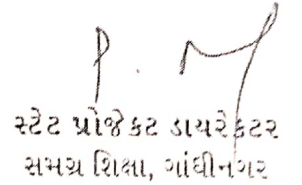 સ્ટેટ પ્રોજેક્ટ ડાયરેક્ટર
સમગ્ર શિક્ષા, ગાંધીનગર